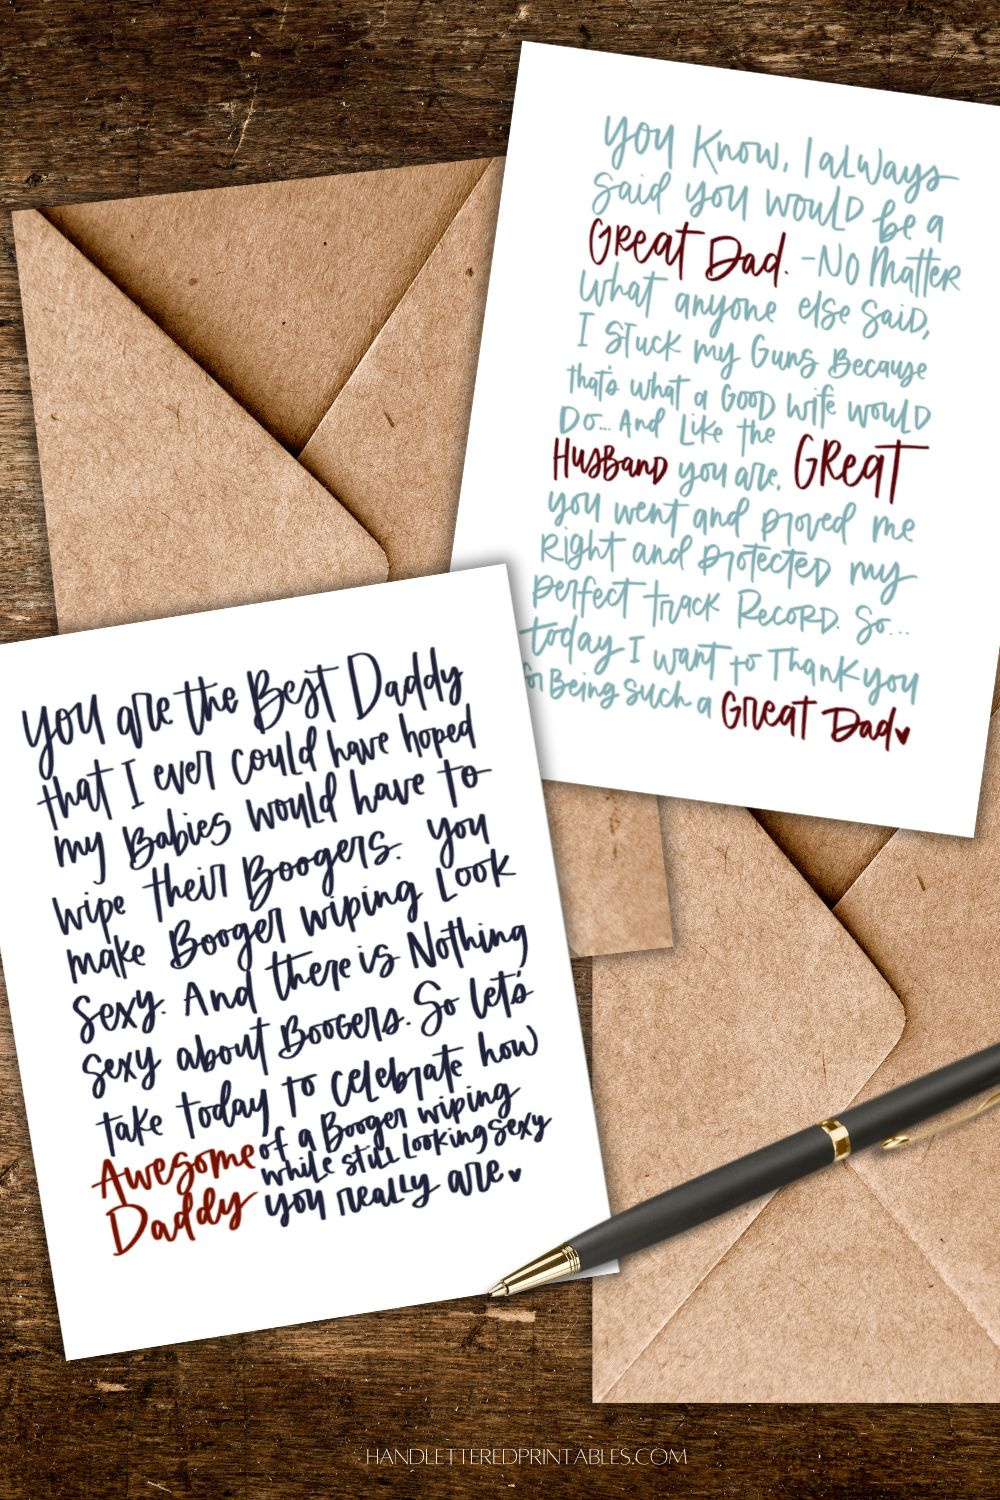 You Know, I always
said you would be a
Great Dad. - No Matter
what anyone else said,
I stuck my Guns Because
that's what a Good wife would
Do... And Like the GREAT
Husband you are,
you went and proved me
Right and protected my
perfect track Record. So...
today I want to Thank you
for Being such a Great Dad
You are the Best Daddy
that I ever could have hoped
my Babies would have to
wipe their Boogers. You
make Booger wiping Look
Sexy. And there is Nothing
Sexy about Boogers. So let's
take today to celebrate how
Awesome of a Booger wiping
Daddy while still looking sexy
you really are
HANDLETTEREDPRINTABLES.COM